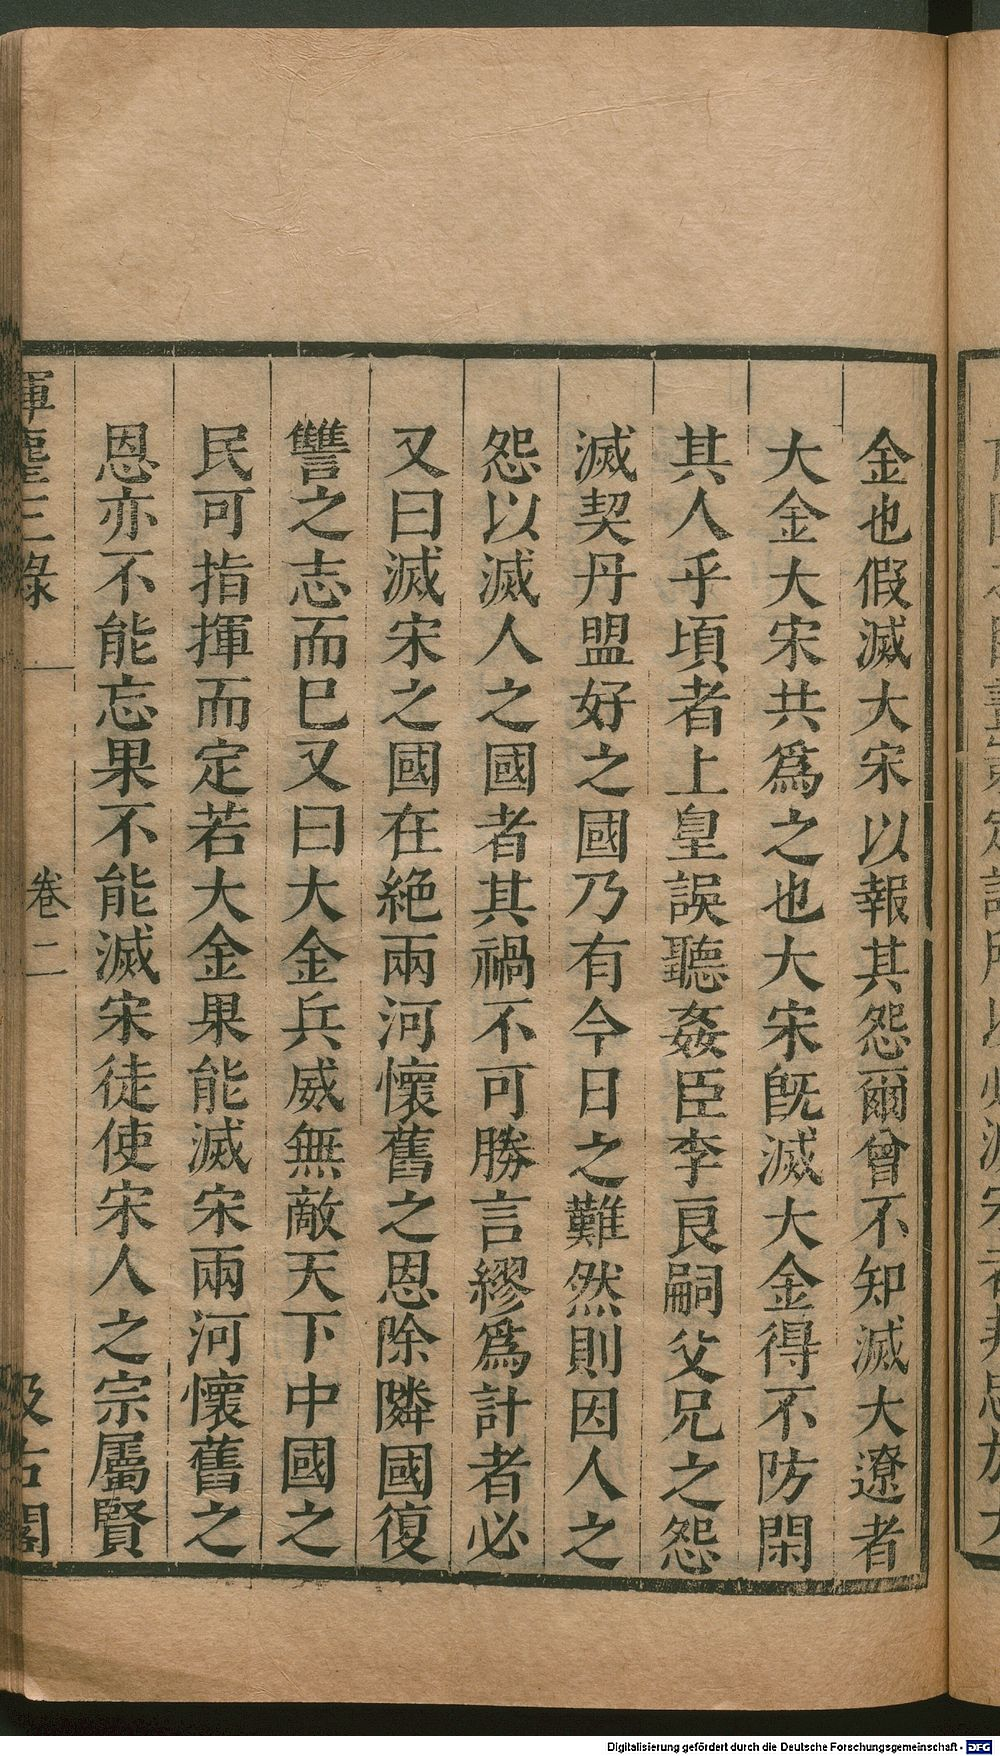 金也假滅大宋以報其怨爾曾不知滅大遼者
大金大宋共爲之也大宋旣滅大金得不防閑
其人乎頃者上皇誤聽姦臣李良嗣父兄之怨
滅契丹盟好之國乃有今日之難然則因人之
怨以滅人之國者其禍不可勝言繆爲計者必
又曰滅宋之國在絶兩河懷舊之恩除隣國復
讐之志而巳又曰大金兵威無敵天下中國之
民可指揮而定若大金果能滅宋兩河懷舊之
恩亦不能忘果不能滅宋徒使宋人之宗屬賢
揮麈三錄 卷二 汲古閣
Digitalisierung gefördert durch die Deutsche Forschungsgemeinschaft - DFG